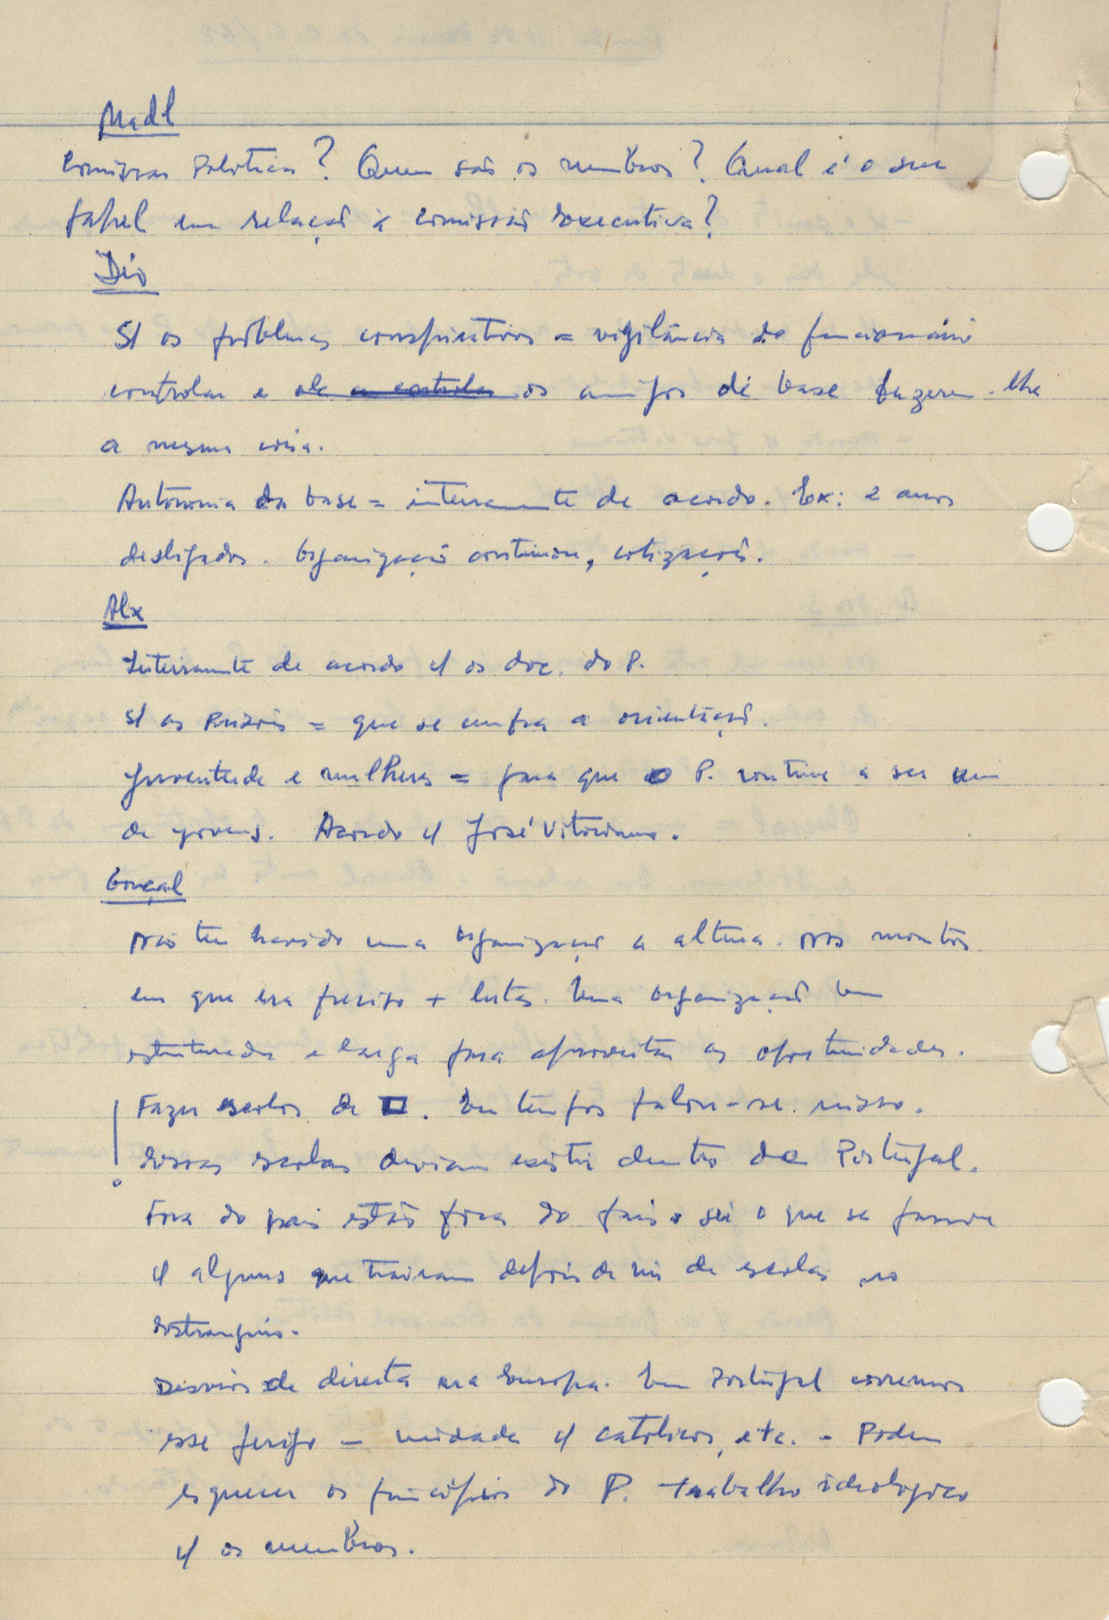 Madl
Comissão Política? Quem são os membros? Qual é o seu
papel em relação à Comissão Executiva?
Dio
S/ os problemas conspirativos = vigilância do funcionário
controlar e os amigos de base fazerem-lhe
a mesma coisa.
Autonomia da base = inteiramente de acordo. Ex: 2 anos
desligados. Organização continuou, cotizações.
Alx
Inteiramente de acordo c/ os doc. do P.
S/ as Prisões = que se cumpra a orientação.
Juventude e mulheres = para que o P. continue a ser um
de jovens. Acordo c/ José Vitoriano.
Gonçal
Não tem havido uma organização à altura nos montos
em que era preciso + lutas. Uma organização bem
estruturada e larga para aproveitar as oportunidades.
Fazer escolas de □. Em tempos falou-se nisso.
Essas escolas deviam existir dentro de Portugal.
Fora do país estão fora do país e sei o que se passou
c/ alguns que trairam depois de vir de escolas no
estrangeiro.
Desvios de direita na Europa. Em Portugal corremos
esse perigo - unidade c/ católicos, etc. - Podem
esquecer os princípios do P. trabalho ideológico
c/ os membros.